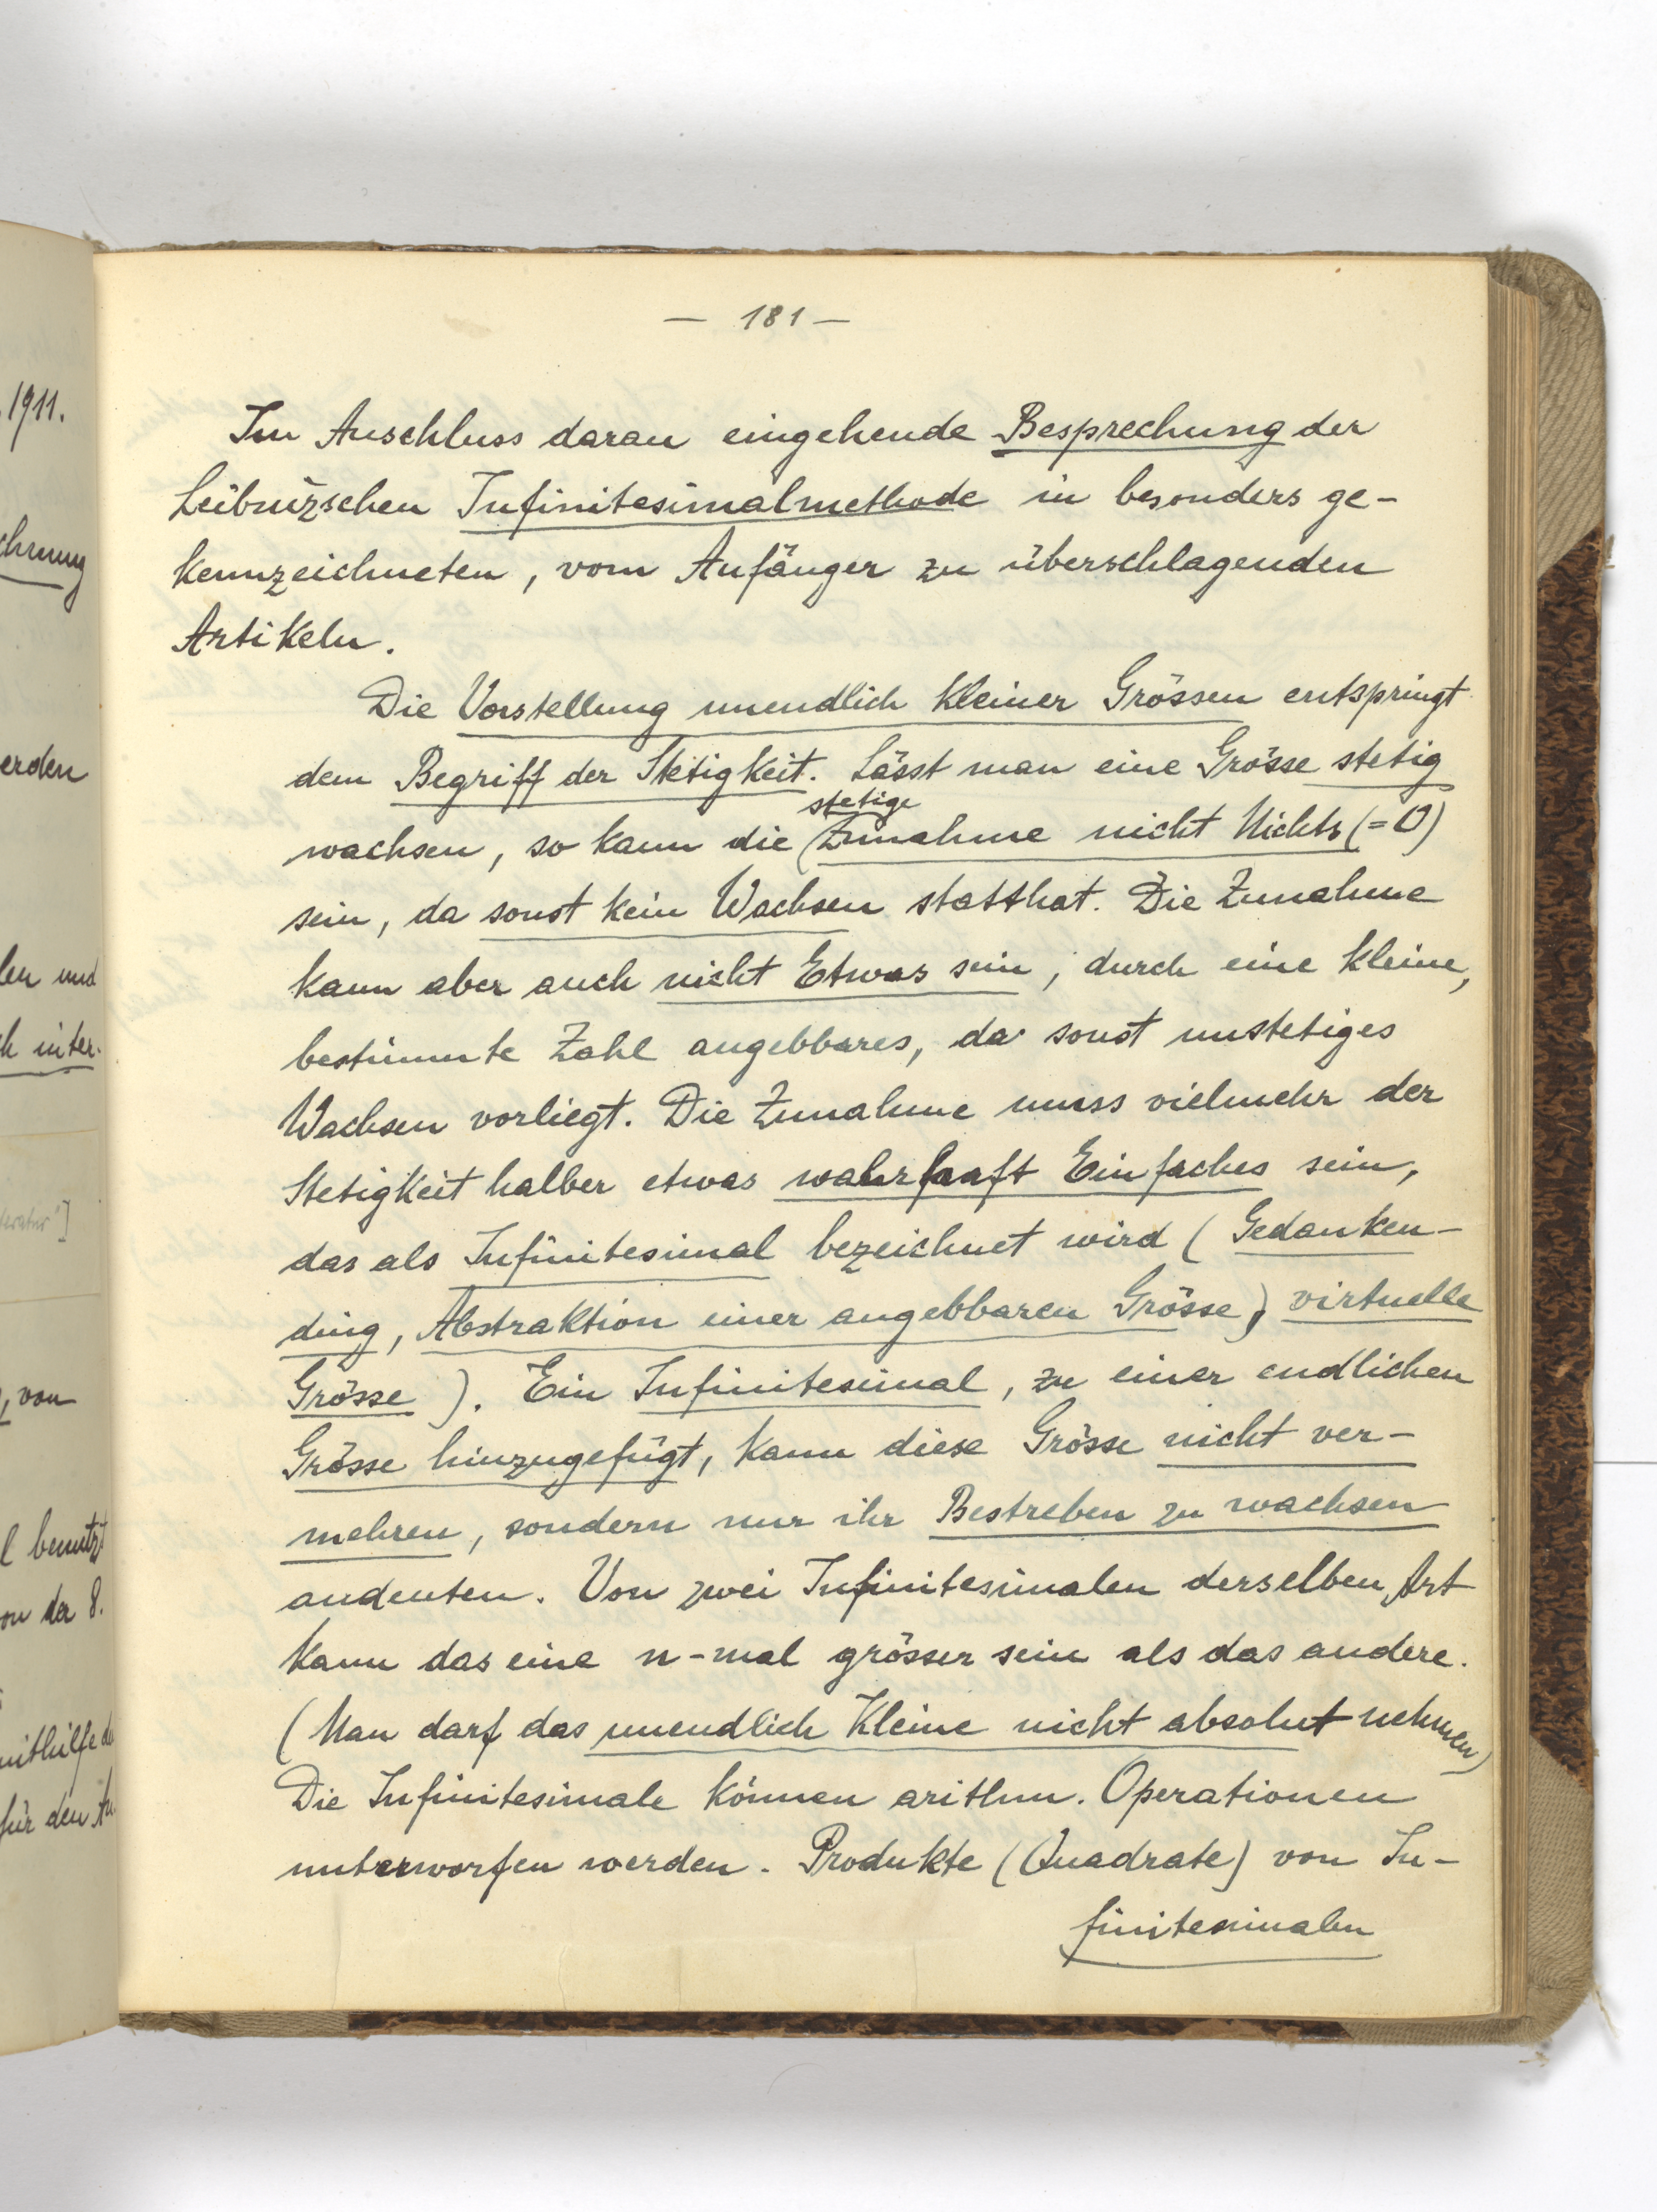 1911.
erden
en und
h inter-
, von
l benutzt
on der 8.
für den
— 181 —
Im Anschluss daran eingehende Besprechung der
Leibnizschen Infinitesimalmethode in besonders ge-
kennzeichneten, vom Anfänger zu überschlagenden
Artikeln.
Die Vorstellung unendlich kleiner Grössen entspringt
dem Begriff der Stetigkeit. Lässt man eine Grösse stetig
stetige
wachsen, so kann die (Zunahme nicht Nichts (=0)
sein, da sonst kein Wachsen statthat. Die Zunahme
kann aber auch nicht Etwas sein, durch eine kleine,
bestimmte Zahl angebbares, da sonst unstetiges
Wachsen vorliegt. Die Zunahme muss vielmehr der
Stetigkeit halber etwas wahrhaft Einfaches sein,
das als Infinitesimal bezeichnet wird (Gedanken-
ding, Abstraktion einer angebbaren Grösse, virtuelle
Grösse). Ein Infinitesimal, zu einer endlichen
Grösse hinzugefügt, kann diese Grösse nicht ver-
mehren, sondern nur ihr Bestreben zu wachsen
andeuten. Von zwei Infinitesimalen derselben Art
kann das eine n-mal grösser sein als das andere.
(Man darf das unendlich Kleine nicht absolut nehmen)
Die Infinitesimale können arithm. Operationen
unterworfen werden. Produkte (Quadrate) von In-
finitesimalen